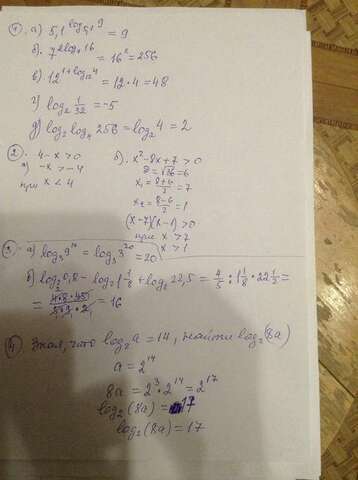 1. а) 5,1^(log₅,₁ 9) = 9
б) 7^(2log₇ 16) = 16² = 256
в) 12^(1+log₁₂ 4) = 12·4 = 48
г) log₂ 1/32 = -5
д) log₂ log₄ 256 = log₂ 4 = 2
2. 4-x>0
а) -x>-4
при x<4
б) x²-8x+7>0
D=√36=6
x₁=(8+6)/2=7
x₂=(8-6)/2=1
(x-7)(x-1)>0
при x>7
x>1
3. а) log₃ 9¹⁰ = log₃ 3²⁰ = 20
б) log₂ 0,8 - log₂ 1 1/8 + log₂ 22,5 = 4/5 : 1 1/8 · 22 1/2 =
= (4·8·45)/(5·9·2) = 16
4. Зная, что log₂ a = 14, найти log₂(8a)
a = 2¹⁴
8a = 2³·2¹⁴ = 2¹⁷
log₂(8a) = 17
log₂(8a) = 17